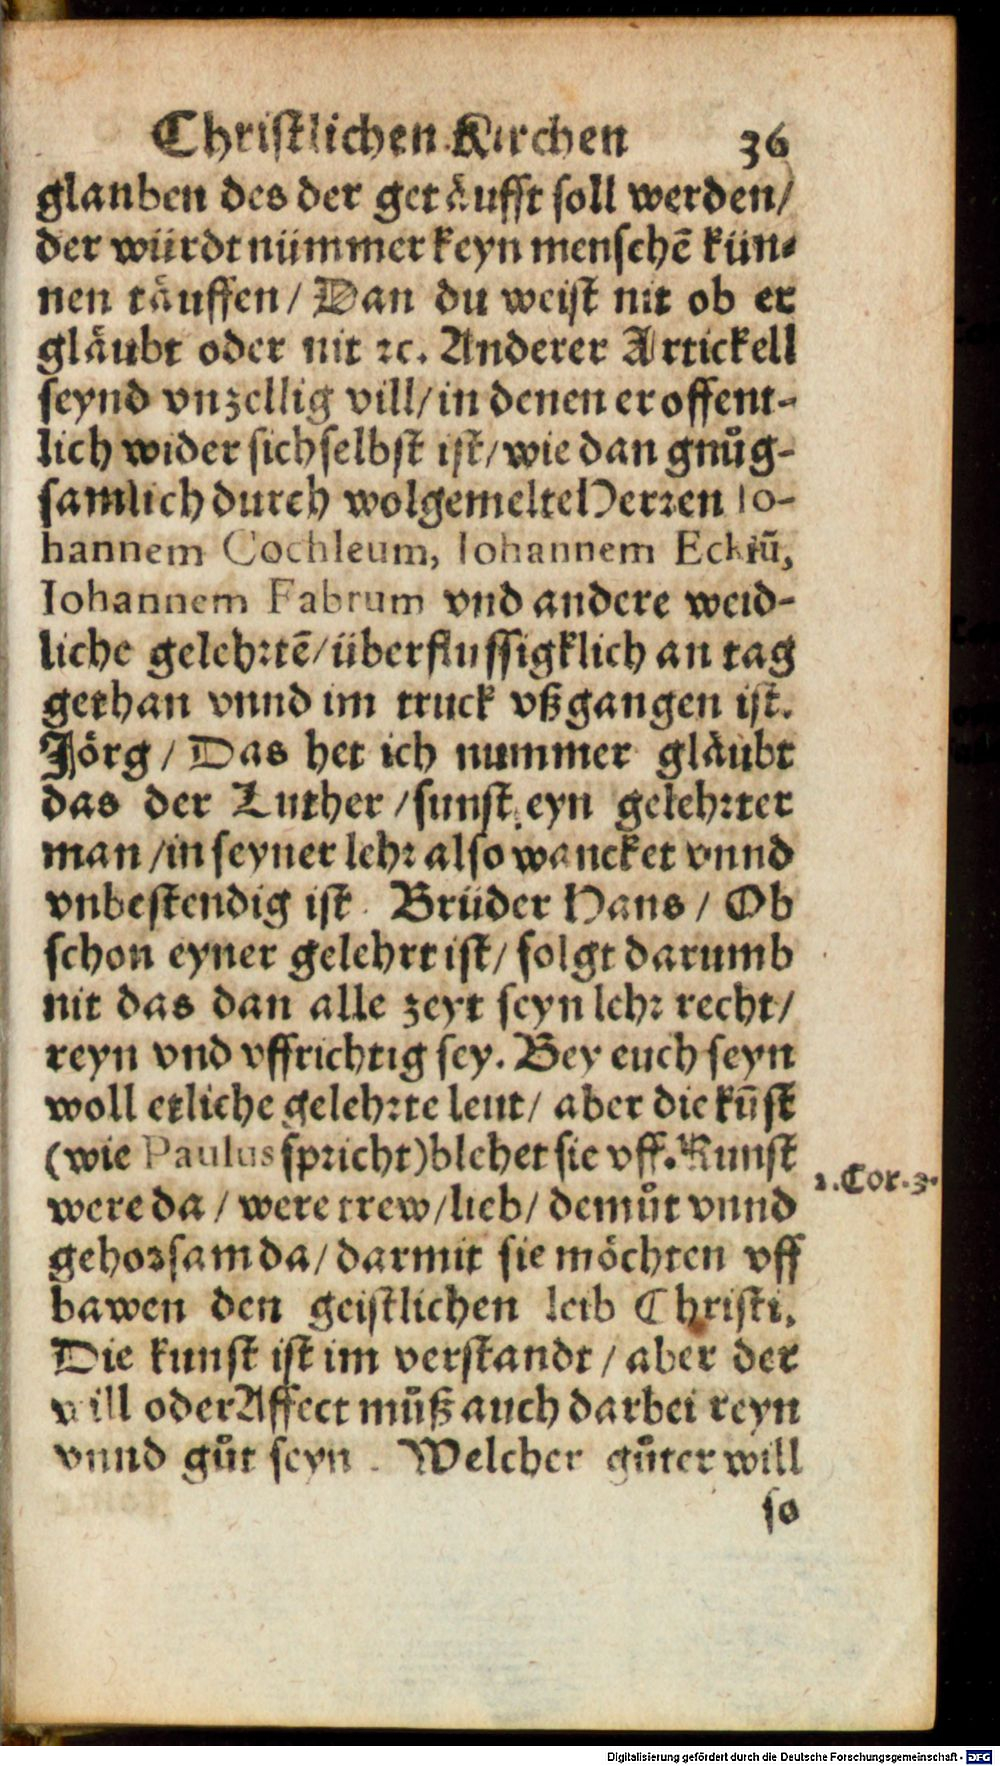 Christlichen Kirchen 36
glauben des der getäufft soll werden/
der würdt nümmer keyn menschē kün⸗
nen täuffen/ Dan du weist nit ob er
gläubt oder nit ꝛc. Anderer Artickell
seynd vnzellig vill/ in denen er offent-
lich wider sich selbst ist/ wie dan gnůg-
samlich durch wolgemelte Herꝛen Io-
hannem Cochleum, Iohannem Eckiū,
Iohannem Fabrum vnd andere weid-
liche gelehꝛtē/ überflussigklich an tag
gethan vnnd im truck vßgangen ist.
Jörg/ Das het ich nummer gläubt
das der Luther/ sunst eyn gelehꝛter
man/ in seyner lehꝛ also wancket vnnd
vnbestendig ist. Brüder Hans/ Ob
schon eyner gelehrt ist/ folgt darumb
nit das dan alle zeyt seyn lehꝛ recht/
reyn vnd vffrichtig sey. Bey euch seyn
woll etliche gelehꝛte leut/ aber die kūst
(wie Paulus spꝛicht) blehet sie vff. Kunst
were da/ were trew/ lieb/ demůt vnnd
gehoꝛsam da/ darmit sie möchten vff
bawen den geistlichen leib Christi.
Die kunst ist im verstandt/ aber der
will oder Affect můß auch darbei reyn
vnnd gůt seyn. Welcher gůter will
so
1. Cor. 3.
Digitalisierung gefördert durch die Deutsche Forschungsgemeinschaft - DFG